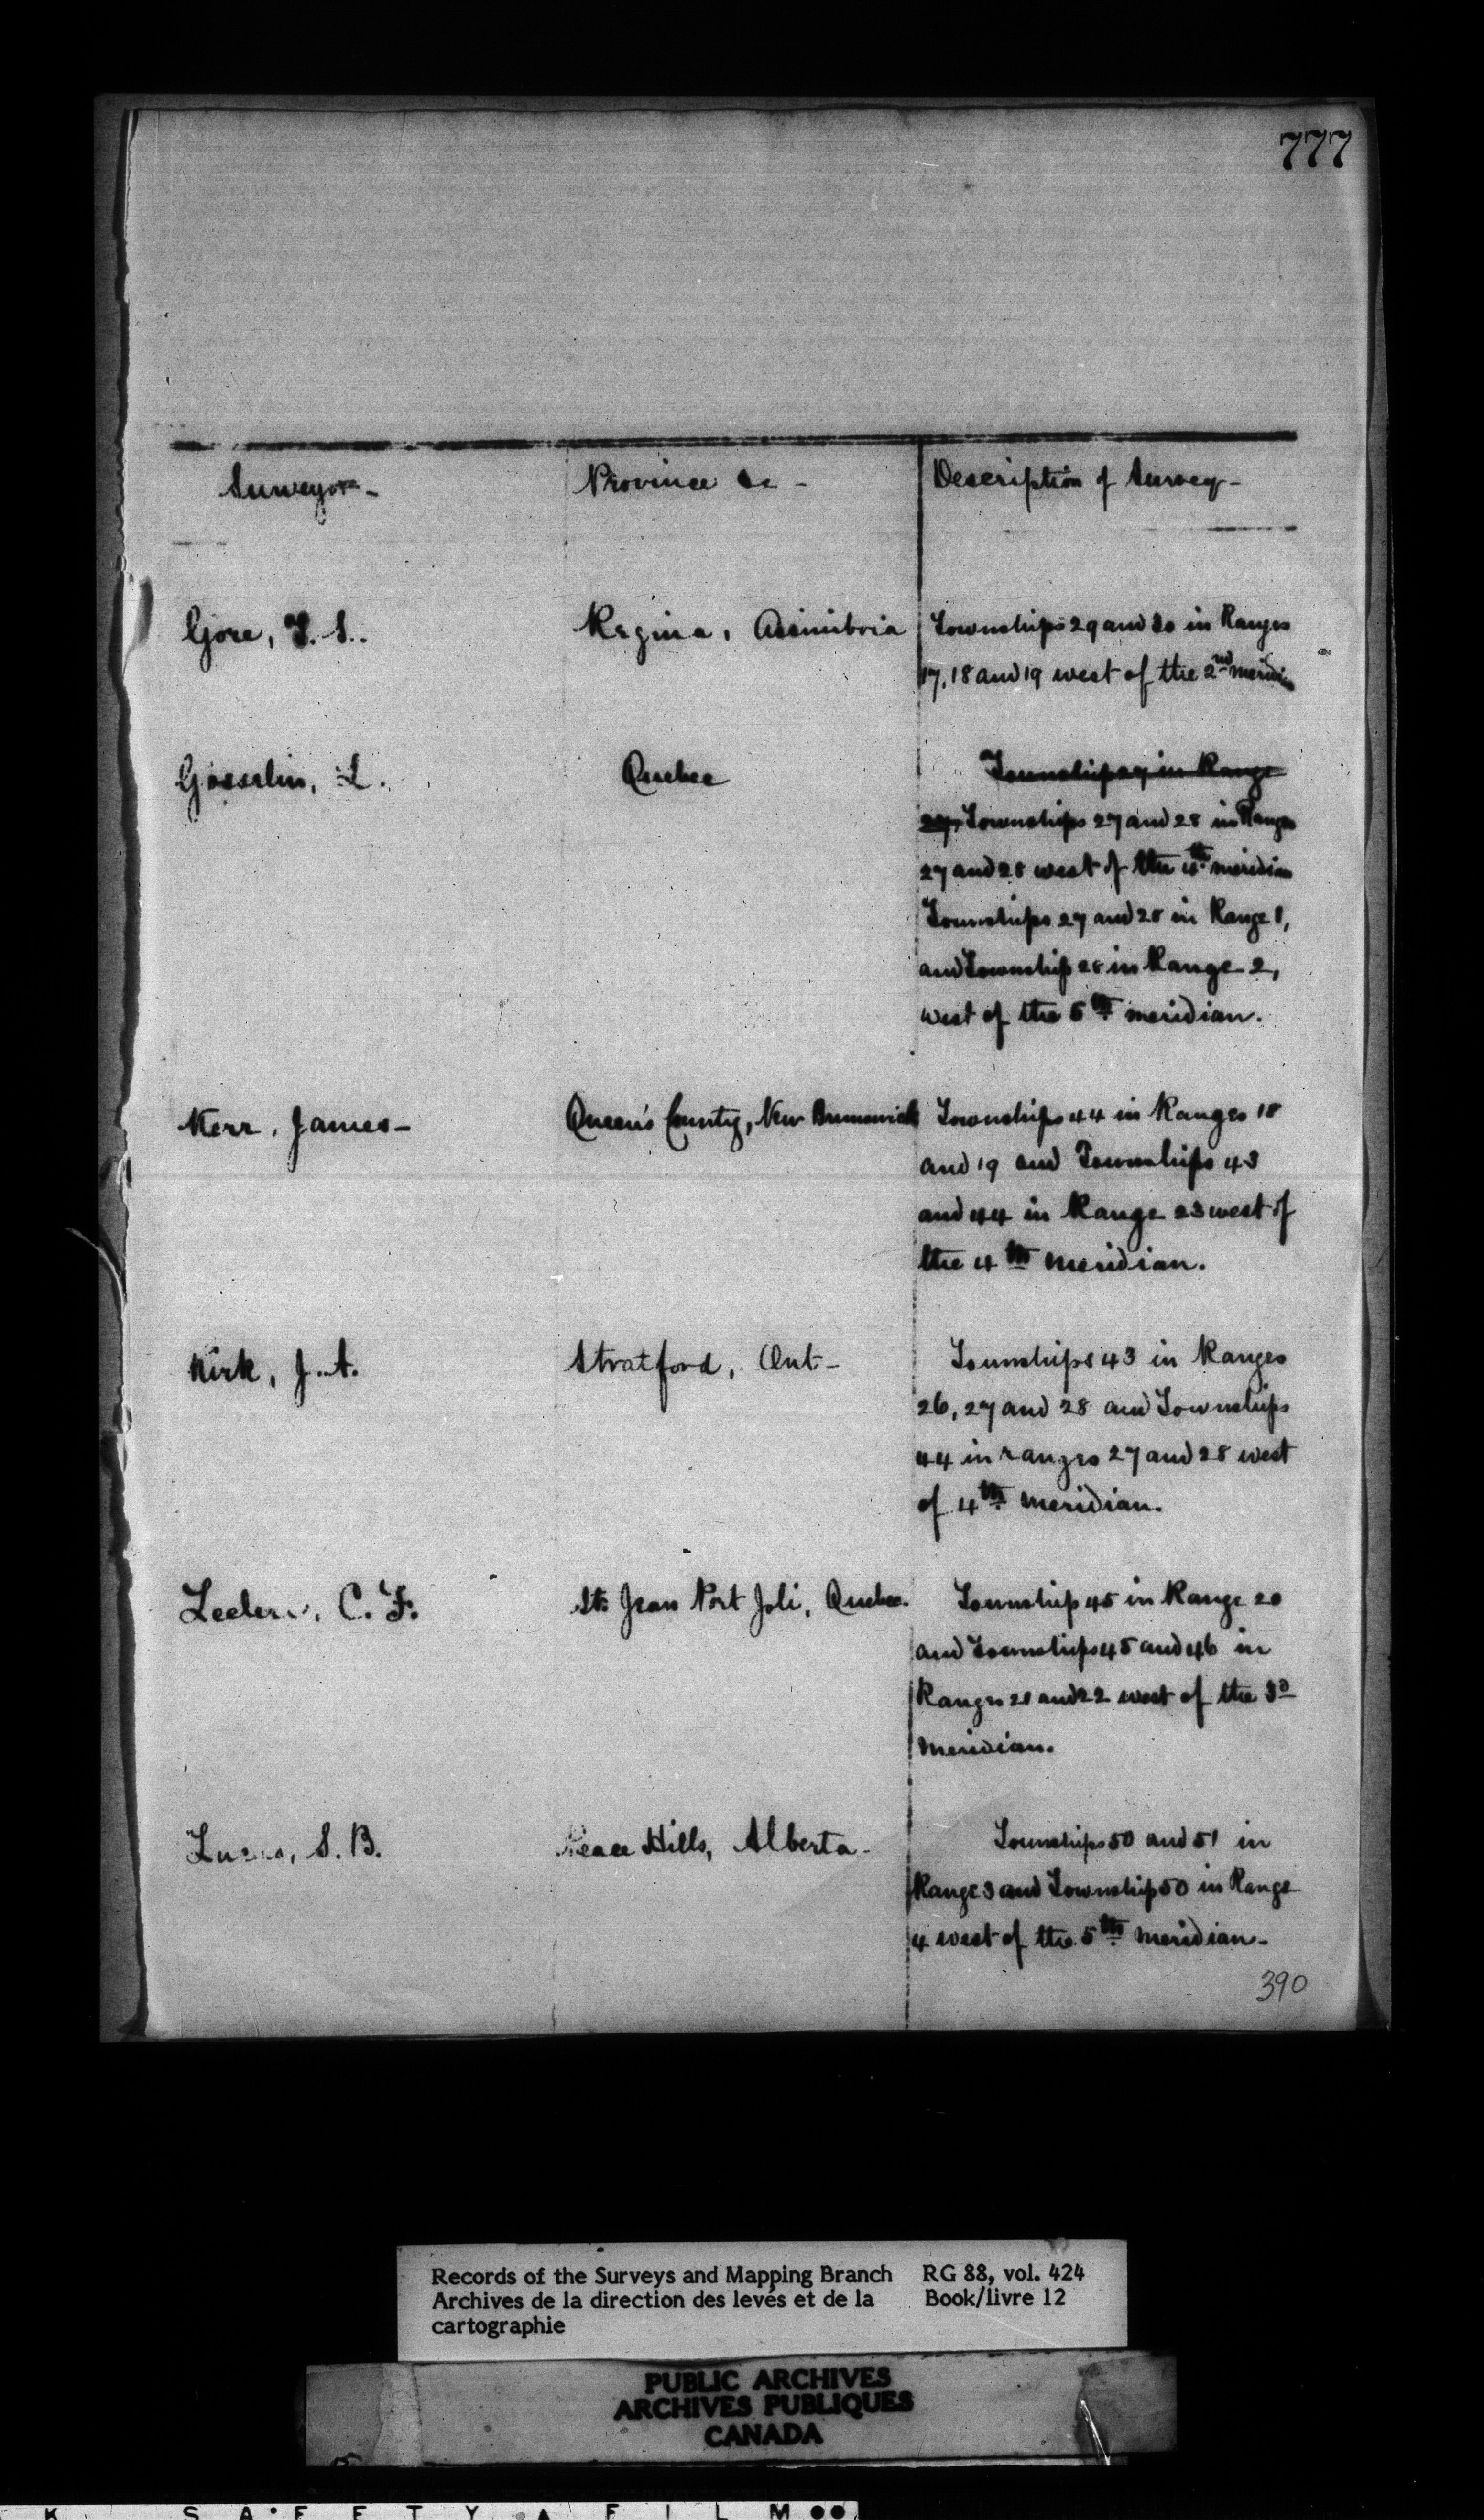 777
Surveyor - Province &c - Description of Survey -
Gore, T. S. Regina, Assiniboia Townships 29 and 30 in Ranges
17, 18 and 19 west of the 2nd meridian
Gosselin, L. Quebec Township 27 in Range
27, Townships 27 and 28 in Ranges
27 and 28 west of the 4th meridian
Townships 27 and 28 in Range 1,
and Township 28 in Range 2,
west of the 5th meridian.
Kerr, James - Queen's County, New Brunswick Townships 44 in Ranges 18
and 19 and Townships 43
and 44 in Range 23 west of
the 4th meridian.
Kirk, J. A. Stratford, Ont - Townships 43 in Ranges
26, 27 and 28 and Townships
44 in ranges 27 and 28 west
of 4th meridian.
Leclerc, C. F. St. Jean Port Joli, Quebec. Township 45 in Range 20
and Townships 45 and 46 in
Ranges 21 and 22 west of the 3d
meridian.
Lucas, S. B. Peace Hills, Alberta - Townships 50 and 51 in
Range 3 and Township 50 in Range
4 west of the 5th meridian -
390
Records of the Surveys and Mapping Branch RG 88, vol. 424
Archives de la direction des levés et de la Book/livre 12
cartographie
PUBLIC ARCHIVES
ARCHIVES PUBLIQUES
CANADA
K SAFETY FILM